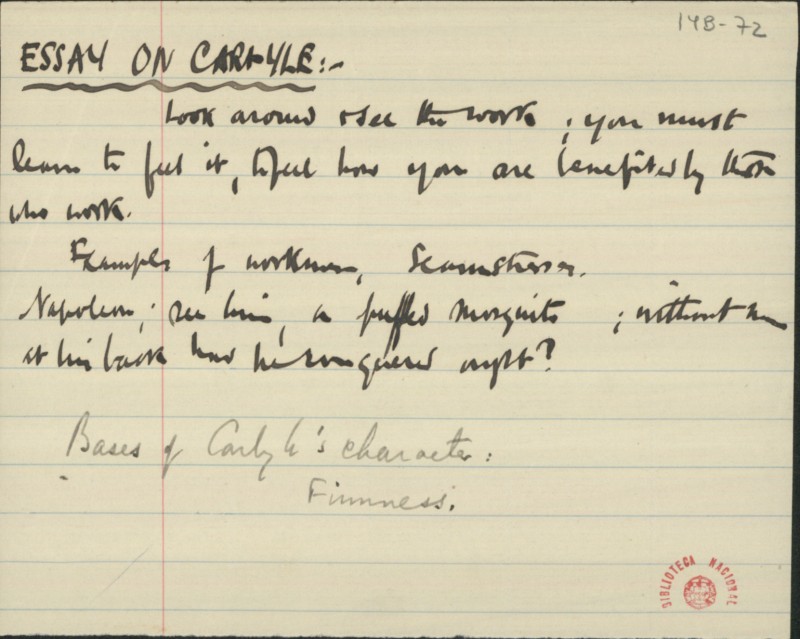 14B-72
ESSAY ON CARLYLE:-
Look around & see the work ; you must
learn to feel it, to feel how you are benefited by those
who work.
Examples of workmen, Seamstresses.
Napoleon; see him, a puffed mosquito ; without men
at his back had he conquered aught?
Bases of Carlyle's character:
Firmness.
BIBLIOTECA NACIONAL